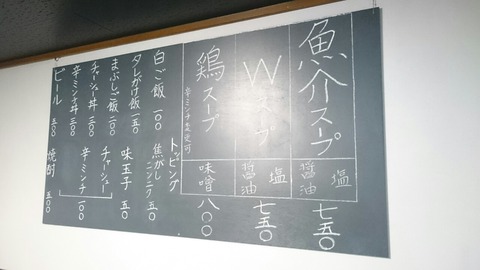 魚介スープ
塩
醤油
七五〇
Wスープ
塩
醤油
七五〇
鶏スープ
辛ミンチ変更可
味噌
八〇〇
トッピング
白ご飯 一〇〇
焦がしニンニク 五〇
タレがけ飯 一五〇
味玉子 五〇
まぶしご飯 二〇〇
チャーシュー
チャーシュー丼 三〇〇
辛ミンチ 一〇〇
辛ミンチ丼 三〇〇
ビール 五〇〇
焼酎 五〇〇